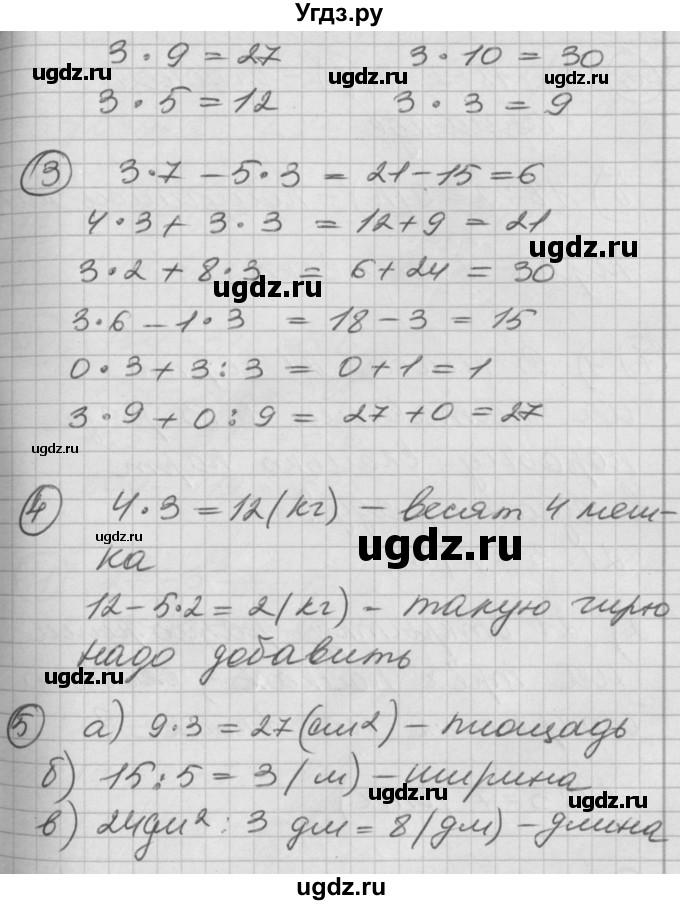 Угдз.ру
3 · 9 = 27 3 · 10 = 30
ugdz.ru ugdz.ru ugdz.ru
3 · 5 = 12 3 · 3 = 9
3 3·7 – 5·3 = 21 – 15 = 6
4·3 + 3·3 = 12 + 9 = 21
ugdz.ru
3·2 + 8·3 = 6 + 24 = 30
ugdz.ru
3·6 – 1·3 = 18 – 3 = 15
0·3 + 3:3 = 0 + 1 = 1
3·9 + 0:9 = 27 + 0 = 27
ugdz.ru
4 4·3 = 12 (кг) – весят 4 меш-
ugdz.ru ugdz.ru
ка
12 – 5·2 = 2 (кг) – такую гирю
надо добавить
ugdz.ru
5 а) 9·3 = 27 (см²) – площадь
б) 15:5 = 3 (м) – ширина
ugdz.ru ugdz.ru
в) 24дм² : 3 дм = 8 (дм) – длина
ugdz.ru
ugdz.ru